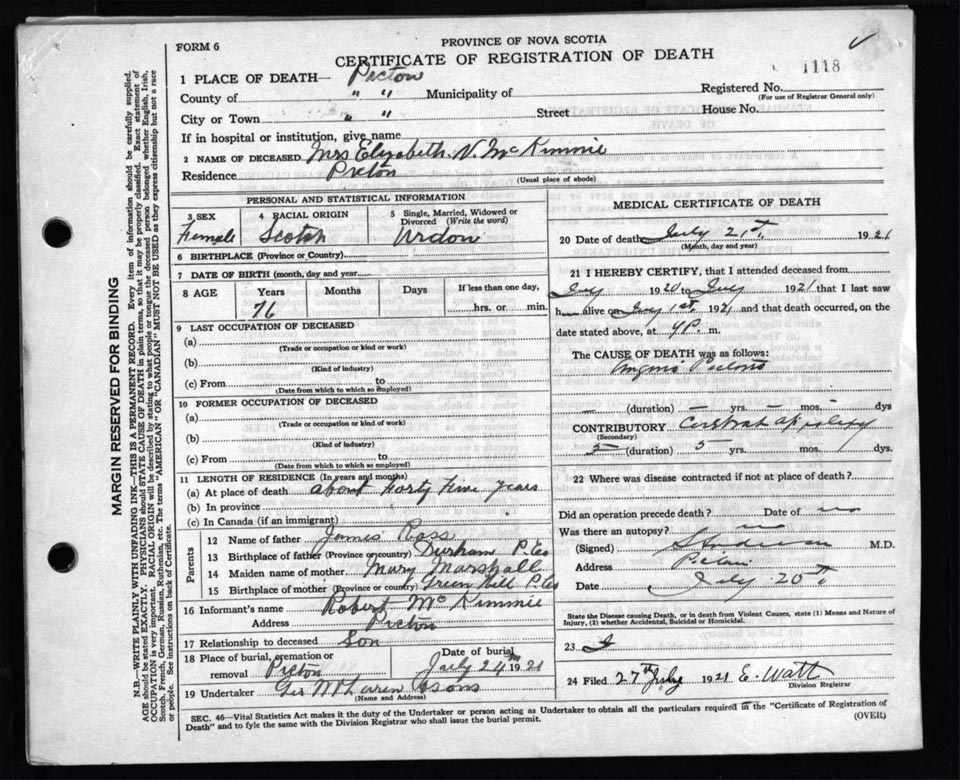 FORM 6
PROVINCE OF NOVA SCOTIA
CERTIFICATE OF REGISTRATION OF DEATH
1118
1 PLACE OF DEATH— Picton
Registered No.
(For use of Registrar General only)
County of " " Municipality of
City or Town " " Street House No.
If in hospital or institution, give name
2 NAME OF DECEASED Mrs Elizabeth N. McKimmie
Residence Picton
(Usual place of abode)
PERSONAL AND STATISTICAL INFORMATION
3 SEX Female
4 RACIAL ORIGIN Scotch
5 Single, Married, Widowed or Divorced (Write the word)
6 BIRTHPLACE (Province or County)
7 DATE OF BIRTH (month, day and year)
8 AGE Years Months Days If less than one day,
76 hrs. or min.
9 LAST OCCUPATION OF DECEASED
(a)
(Trade or occupation or kind or work)
(b)
(Kind of industry)
(c) From to
(Date from which to which so employed)
10 FORMER OCCUPATION OF DECEASED
(a)
(Trade or occupation or kind of work)
(b)
(Kind of industry)
(c) From to
(Date from which to which so employed)
11 LENGTH OF RESIDENCE (In years and months)
(a) At place of death About Forty Five Years
(b) In province
(c) In Canada (if an immigrant)
Parents
12 Name of father James Ross
13 Birthplace of father (Province or country) Durham P. Co
14 Maiden name of mother Mary Marshall
15 Birthplace of mother (Province or country) Green Hill P. Co
16 Informant's name Robert McKimmie
Address Picton
17 Relationship to deceased Son
18 Place of burial, cremation or removal Picton
Date of burial July 24th 1921
19 Undertaker Geo McLarren & Sons
(Name and Address)
MEDICAL CERTIFICATE OF DEATH
20 Date of death July 21st, 1921
(Month, day and year)
21 I HEREBY CERTIFY, that I attended deceased from
July 1920 to July 1921 that I last saw
h alive on July 1st, 1921 and that death occurred, on the
date stated above, at 4P. m.
The CAUSE OF DEATH was as follows:
Angina Pectoris
(duration) yrs. mos. dys
CONTRIBUTORY
(Secondary)
5 (duration) 5 yrs. mos. dys.
22 Where was disease contracted if not at place of death?
Did an operation precede death? Date of no
Was there an autopsy? no
(Signed) M.D.
Address Picton
Date July 20th
State the Disease causing Death, or in death from Violent Causes, state (1) Means and Nature of Injury, (2) whether Accidental, Suicidal or Homicidal.
23
24 Filed 27th July 1921 E. Watt
Division Registrar
SEC. 46—Vital Statistics Act makes it the duty of the Undertaker or person acting as Undertaker to obtain all the particulars required in the "Certificate of Registration of
Death" and to fyle the same with the Division Registrar who shall issue the burial permit.
(OVER)
MARGIN RESERVED FOR BINDING
N.B.—WRITE PLAINLY WITH UNFADING INK—THIS IS A PERMANENT RECORD. Every item of information should be carefully supplied.
AGE should be stated EXACTLY. PHYSICIANS should STATE CAUSE OF DEATH in plain terms, so that it may be properly classified. Exact statement of
OCCUPATION is very important. RACIAL ORIGIN will be described by stating to what people or tongue the deceased person belonged whether English, Irish,
Scotch, French, German, Russian, Ruthenian, etc. The terms "AMERICAN" or "CANADIAN" MUST NOT BE USED as they express citizenship but not a race
or people. See instructions on back of Certificate.